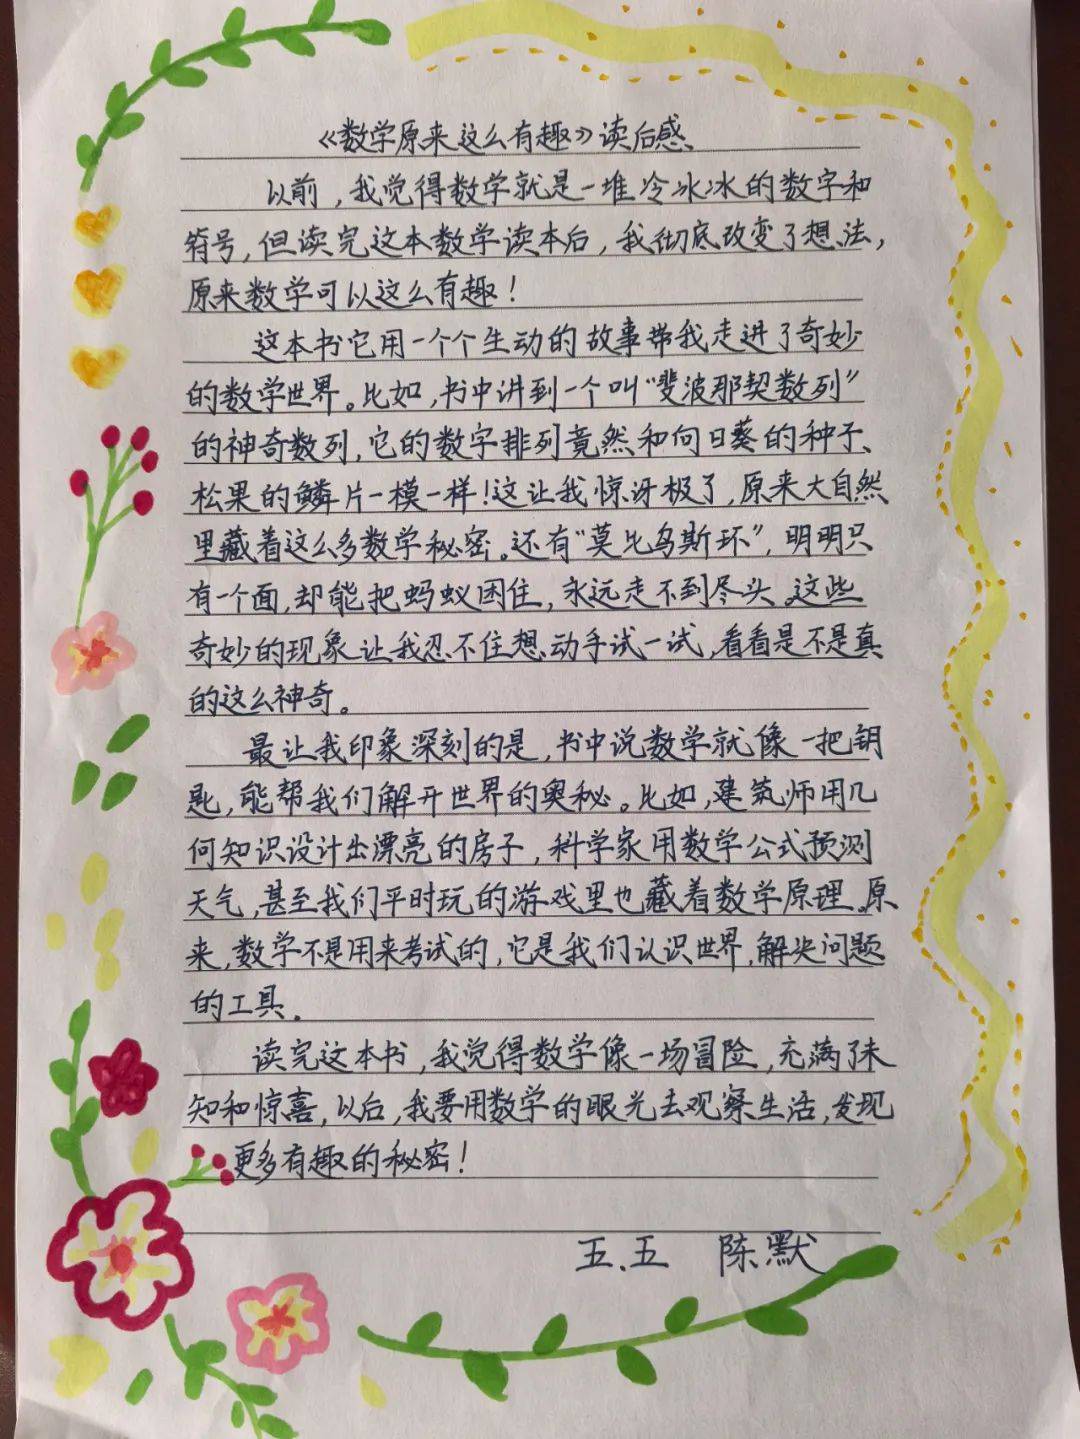 《数学原来这么有趣》读后感
以前，我觉得数学就是一堆冷冰冰的数字和
符号，但读完这本数学读本后，我彻底改变了想法，
原来数学可以这么有趣！
这本书它用一个个生动的故事带我走进了奇妙
的数学世界。比如，书中讲到一个叫“斐波那契数列”
的神奇数列，它的数字排列竟然和向日葵的种子、
松果的鳞片一模一样！这让我惊讶极了，原来大自然
里藏着这么多数学秘密。还有“莫比乌斯环”，明明只
有一个面，却能把蚂蚁困住，永远走不到尽头。这些
奇妙的现象让我忍不住想动手试一试，看看是不是真
的这么神奇。
最让我印象深刻的是，书中说数学就像一把钥
匙，能帮我们解开世界的奥秘。比如，建筑师用几
何知识设计出漂亮的房子，科学家用数学公式预测
天气，甚至我们平时玩的游戏里也藏着数学原理。原
来，数学不是用来考试的，它是我们认识世界，解决问题
的工具。
读完这本书，我觉得数学像一场冒险，充满了未
知和惊喜，以后，我要用数学的眼光去观察生活，发现
更多有趣的秘密！
五.五 陈默